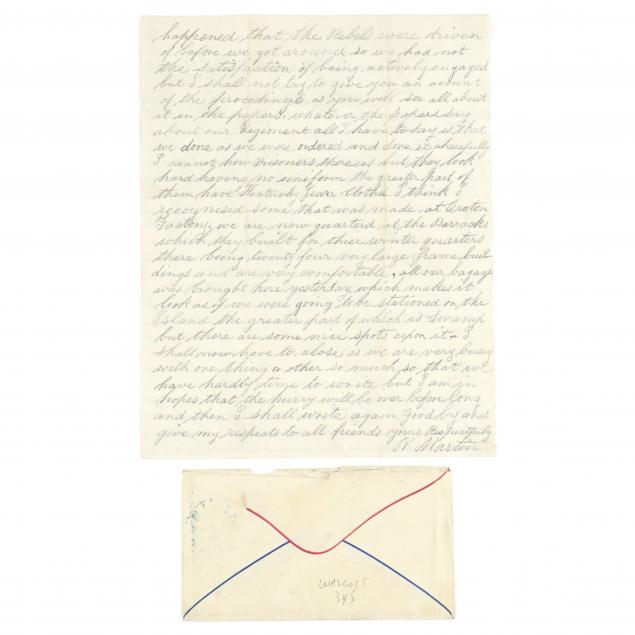 happened that the Rebels were driven
of before we got around so we had not
the satisfaction of being actively engaged
but I shall not try to give you an account
of the proceedings as you will see all about
it in the papers, whatever the papers say
about our Regiment all I have to say is that
we done as we were ordered and done it cheerfully
I cannot how Prisoners there is but they look
hard having no uniform the greater part of
them have Kentucky Jean Cloths I think I
recognised some that was made at Croton
Factory, we are now quarterd at the Barracks
which they built for thier winter quarters
there being twenty four very large frame buil
dings and are very comfortable, all our bagage
was brought here yesterday which makes it
look as if we were going to be stationed on the
Island the greater part of which is Swamp
but there are some nice spots upon it I
shall now have to close as we are very bussy
with one thing or other so much so that we
have hardly time to write but I am in
hopes that the hurry will be over before long
and then I shall wrote again good by and
give my respects to all friends yours Respectfully
R. Martin
345